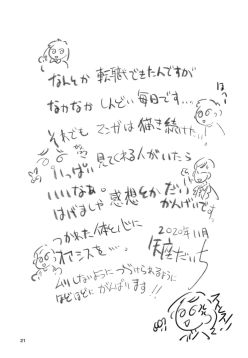 なんとか 転職できたんですが
なかなか しんどい 毎日です…
それでも マンガは 描き続けたい!
いっぱい 見てくれる人がいたら
いいなぁ。 感想とか だい
かんげいです。
はげましや
つかれた体と心に
オアシスを…。
2020年11月
ムリしないように つづけられるように
ほどほどに がんばります!!
21